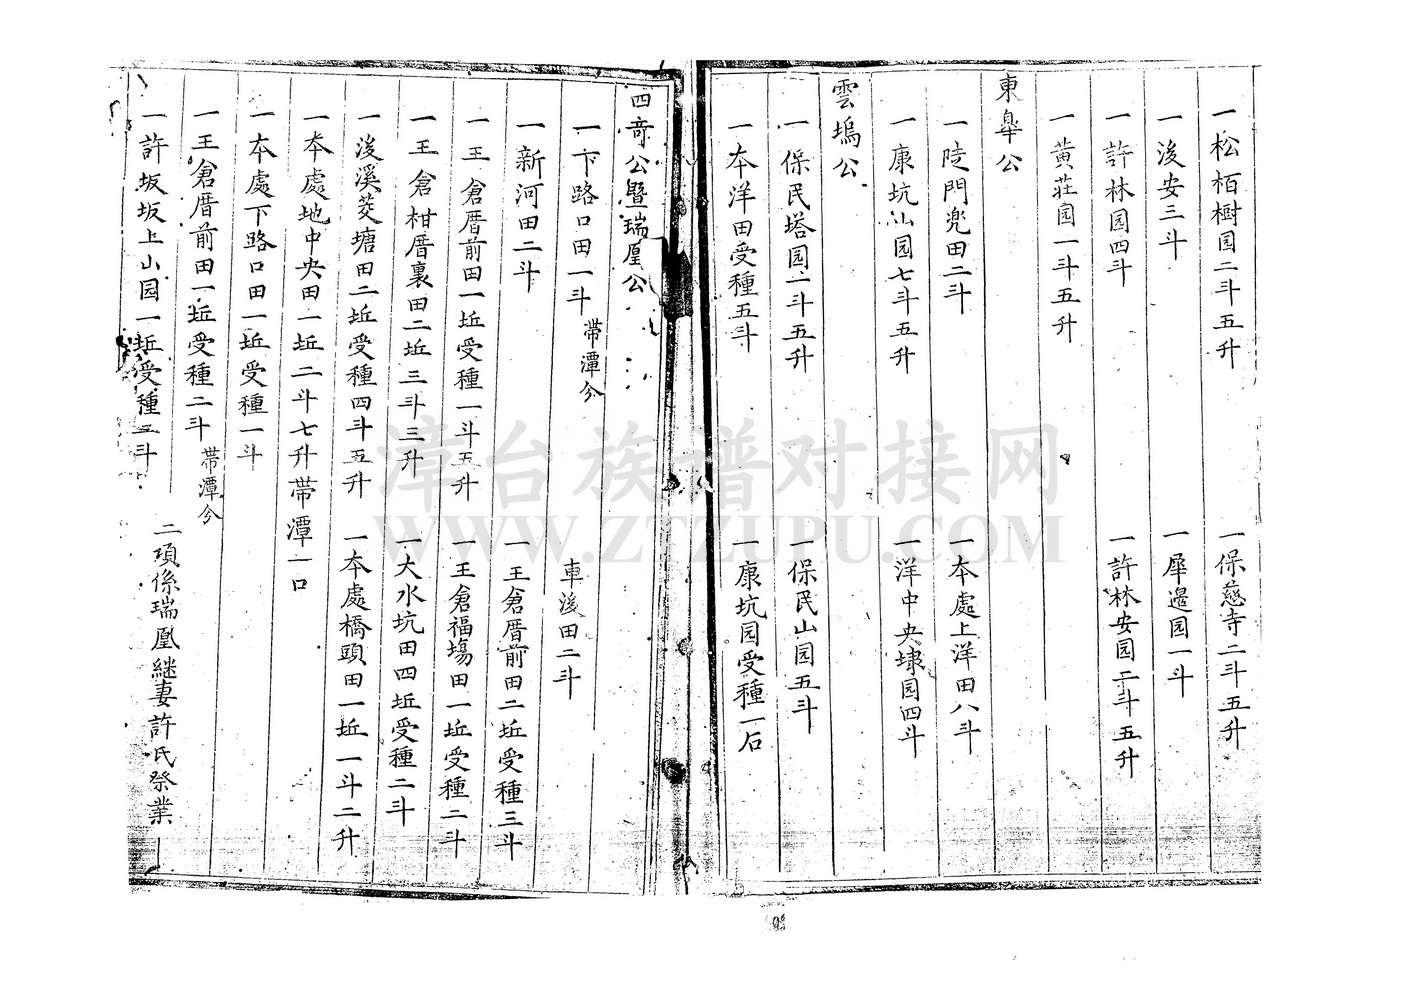 一松栢樹园二斗五升　一保慈寺二斗五升
一浚安三斗　一犀邊园一斗
一許林园四斗　一許林安园二斗五升
一黃莊园一斗五升
東臯公
一陡門兠田二斗　一本處上洋田八斗
一康坑山园七斗五升　一洋中央埭园四斗
雲塢公
一保民塔园二斗五升　一保民山园五斗
一本洋田受種五斗　一康坑园受種一石
四奇公暨瑞凰公
一下路口田一斗 帶潭分　車浚田二斗
一新河田二斗　一王倉厝前田二坵受種三斗
一王倉厝前田一坵受種一斗五升　一王倉福塲田一坵受種二斗
一王倉柑厝裏田二坵三斗三升　一大水坑田四坵受種二斗
一浚溪茭塘田二坵受種四斗五升　一本處橋頭田一坵一斗二升
一本處地中央田一坵二斗七升帶潭一口
一本處下路口田一坵受種一斗
一王倉厝前田一坵受種二斗 帶潭分
一許坂坂上山园一坵受種二斗　二項係瑞凰継妻許氏祭業
漳台族谱对接网
WWW.ZTZUPU.COM